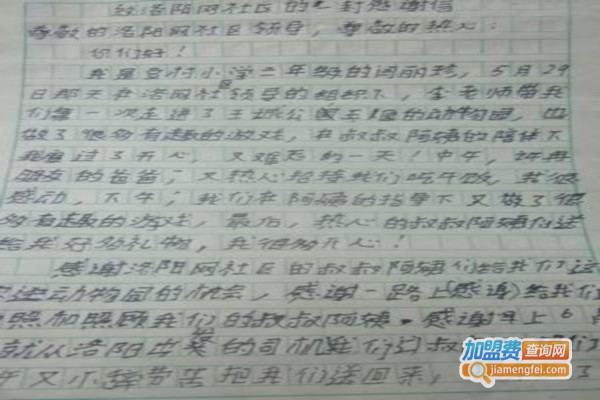 给洛阳网社区的一封感谢信
尊敬的洛阳网社区领导，尊敬的热心：
你们好！
我是 小学二年级的闫丽珍，5月29
日那天在洛阳网社区领导的组织下，李老师带我
们第一次走进了王城公园王城的动物园，也
做了很多有趣的游戏，在叔叔阿姨的陪伴下
我度过了开心，又难忘的一天！中午，
朋友的爸爸，又热心招待我们吃午饭，我很
感动，下午，我们在阿姨的指导下又做了很
多有趣的游戏，最后，热心的叔叔阿姨们送
给我好多礼物，我很开心！
感谢洛阳网社区的叔叔阿姨们给我们这
进动物园的机会，感谢一路上(感谢)给我们
照和照顾我们的叔叔阿姨。感谢早上6点
就从洛阳出发的司机 叔
又 辛苦把我们送回来， 了
加盟费查询网
jiamengfei.com